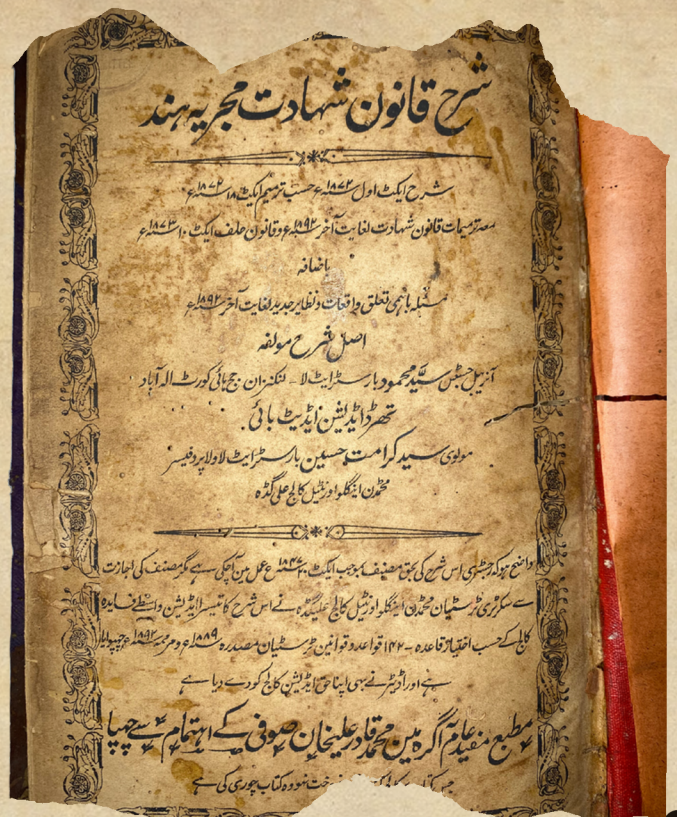 شرح قانون شہادت مجریہ ہند
شرح ایکٹ اول ۱۸۷۲ء حسب ترمیم ایکٹ ۱۸ ۱۸۷۲ء
معہ ترمیمات قانون شہادت لغایت آخر ۱۸۹۲ء و قانون حلف ایکٹ ۱۰ ۱۸۷۳ء
باضافہ
مسئلہ باہمی تعلق واقعات و نظایر جدید لغایت آخر ۱۸۹۲ء
اصل شرح مولفہ
آنریبل جسٹس سید محمود بارسٹرایٹ لا - لنکنزان جج ہائی کورٹ الہ آباد
تھرڈ ایڈیشن ایڈیٹ بائی
مولوی سید کرامت حسین بارسٹرایٹ لا ولا پروفیسر
محمڈن اینگلو اورنٹیل کالج علی گڈہ
واضح ہو کہ رجسٹری اس شرح کی بحق مصنف بموجب ایکٹ ۲۰ ۱۸۴۷ء عمل مین آچکی ہے مگر مصنف کی اجازت
سے سکرٹری ٹرسٹیان محمڈن اینگلو اورنٹیل کالج علیگڈہ نے اس شرح کا تیسرا ایڈیشن واسطے فایدہ
کالج کے حسب اختیار قاعدہ - ۱۴۲ قواعد و قوانین ٹرسٹیان مصدرہ ۱۸۸۹ء و مرممہ ۱۸۹۲ء چھپوایا
ہے اور اڈیٹر نے بھی اپنا حق ایڈیشن کالج کو دے دیا ہے
مطبع مفید عام آگرہ مین محمد قادر علیخان صوفی کے اہتمام سے چھپا
نہو وہ کتاب چوری کی ہے